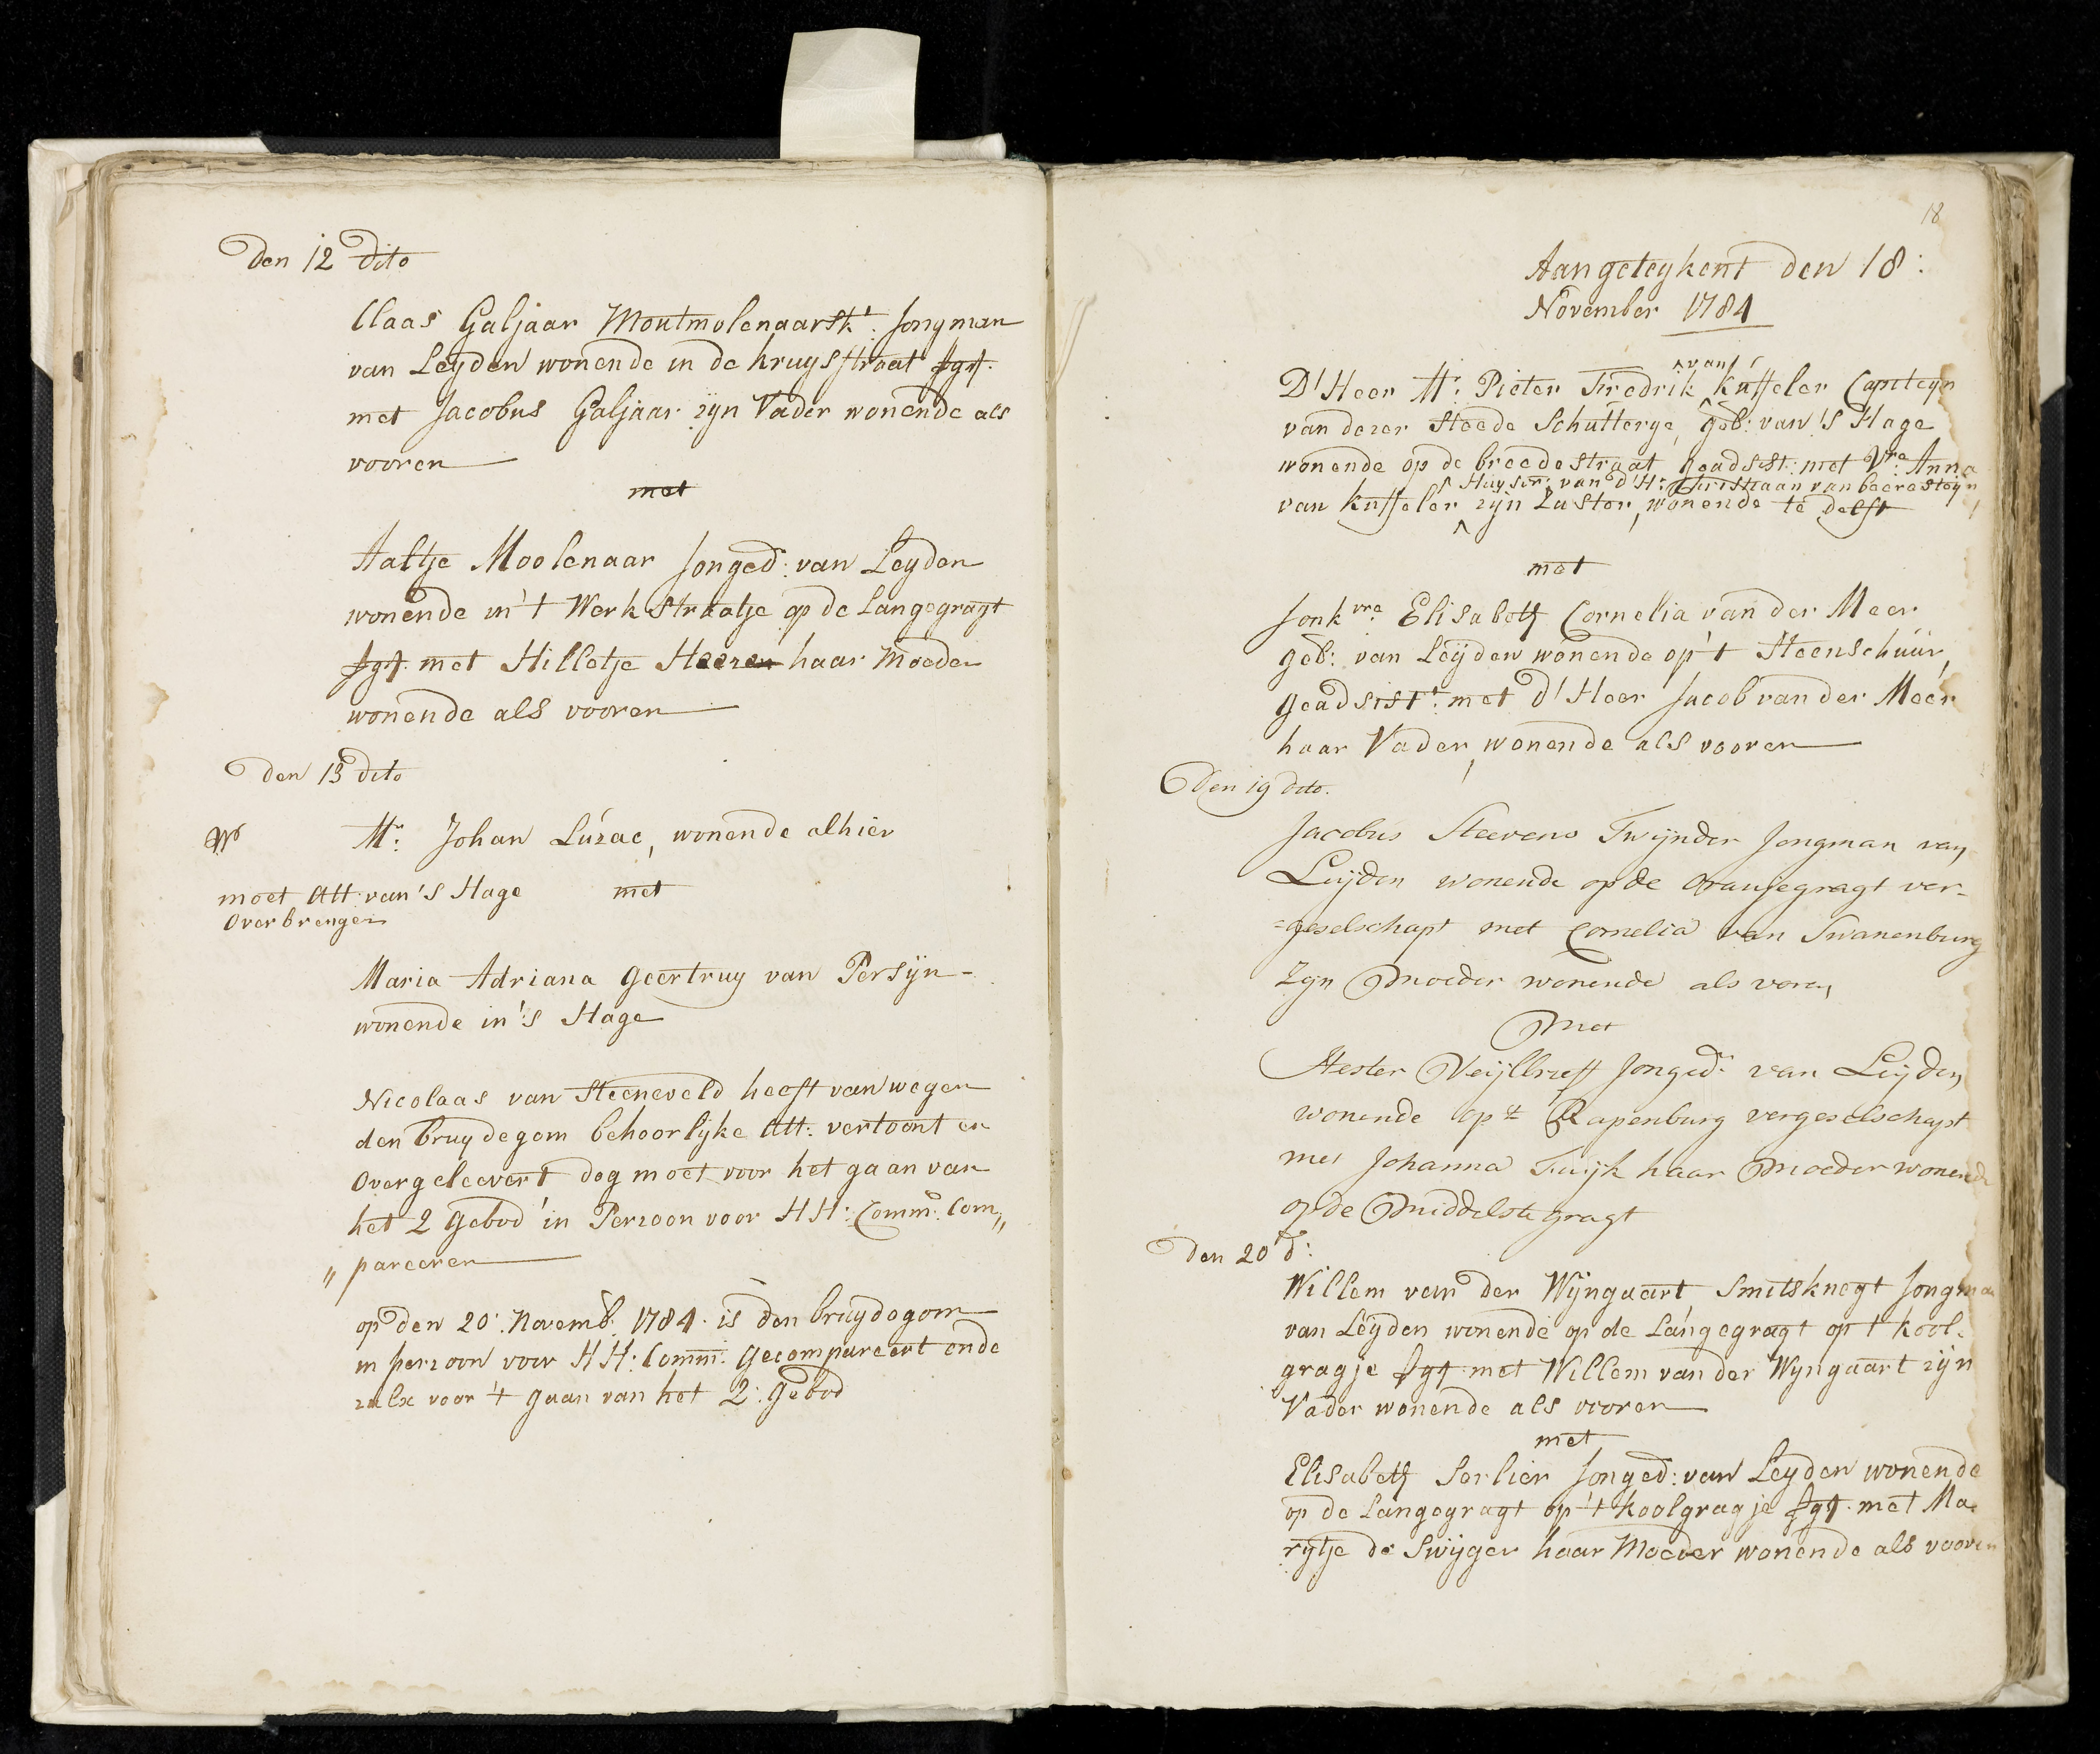 Den 12 Dito
Claas Galjaar Moutmolenaarskt. Jongman
van Leyden wonende in de kruysstraat Jgst.
met Jacobus Galjaar zijn Vader wonende als
vooren
met
Aaltje Moolenaar Jonged: van Leyden
wonende in 't Werkstraatje op de Langegragt
Jgst. met Hilletje Heezen haar Moeder
wonende als vooren
Den 13 dito
Mr: Johan Luzac, wonende alhier
moet Att. van 's Hage met
Overbrengen
Maria Adriana Geertruy van Persijn
wonende in 's Hage
Nicolaas van Steeneveld heeft van wegen
den bruydegom behoorlijke Att: vertoont en
Overgeleevert dog moet voor het gaan van
het 2 Gebod in Perzoon voor HH: Comm: Com„
„pareeren
op den 20: Novemb: 1784 is den bruydegom
in perzoon voor HH: Comm: Gecompareert ende
zulx voor 't gaan van het 2: Gebod
18
Aangeteykent den 18:
November 1784
van
D' Heer Mr: Pieter Fredrik Kuffeler Capiteyn
van dezer Steede Schutterye, geb: van 'S Hage
wonende op de breedestraat geadsist: met Vre. Anna
Huysvr: van d'Hr: Christiaan van beeresteijn,
van Kuffeler zijn Zuster, wonende te Delft
met
Jonkvre. Elisabeth Cornelia van der Meer
geb: van Leyden wonende op 't Steenschuur,
geadsistt: met d' Heer Jacob van der Meer
haar Vader, wonende als vooren
Den 19 dito.
Jacobus Steevens Twijnder Jongman van
Leijden wonende op de oranjegragt ver-
=geselschapt met Cornelia van Swanenburg
Zijn Moeder wonende als voren
Met
Hester Jonged: van Leijden
wonende op t Rapenburg vergeselschapt
met Johanna Twijk haar Moeder wonende
op de Middelste gragt
Den 20 d:
Willem van der Wijngaart Smitsknegt Jongman
van Leyden wonende op de Langegragt op 't Kool-
gragje Jgst. met Willem van der Wyngaart zijn
Vader wonende als vooren
met
Elisabeth Serlier Jonged: van Leyden wonende
op de Langegragt op 't Koolgragje Jgst. met Ma-
rytje de Swijger haar Moeder wonende als vooren